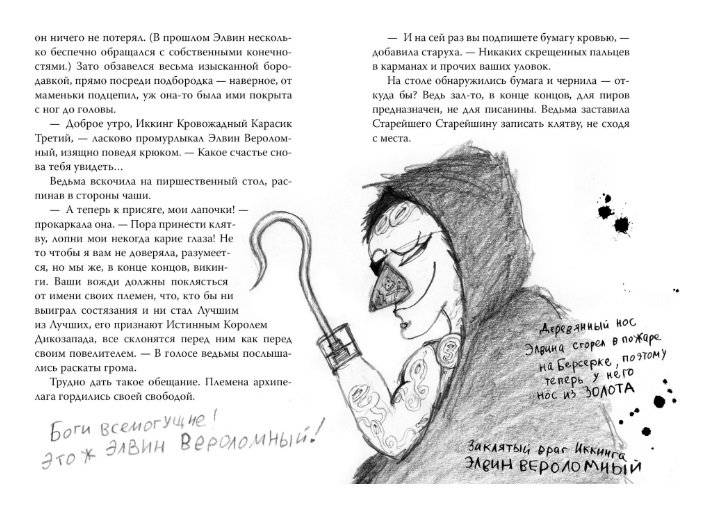 он ничего не потерял. (В прошлом Элвин несколь-
ко беспечно обращался с собственными конечно-
стями.) Зато обзавелся весьма изысканной боро-
давкой, прямо посреди подбородка — наверное, от
маменьки подцепил, уж она-то была ими покрыта
с ног до головы.
— Доброе утро, Иккинг Кровожадный Карасик
Третий, — ласково промурлыкал Элвин Веролом-
ный, изящно поведя крюком. — Какое счастье сно-
ва тебя увидеть…
Ведьма вскочила на пиршественный стол, рас-
пинав в стороны чаши.
— А теперь к присяге, мои лапочки! —
прокаркала она. — Пора принести клят-
ву, лопни мои некогда карие глаза! Не
то чтобы я вам не доверяла, разумеет-
ся, но мы же, в конце концов, викин-
ги. Ваши вожди должны поклясться
от имени своих племен, что, кто бы ни
выиграл состязания и ни стал Лучшим
из Лучших, его признают Истинным Королем
Дикозапада, все склонятся перед ним как перед
своим повелителем. — В голосе ведьмы послыша-
лись раскаты грома.
Трудно дать такое обещание. Племена архипе-
лага гордились своей свободой.
Боги всемогущие!
Это ж ЭЛВИН ВЕРОЛОМНЫЙ!
— И на сей раз вы подпишете бумагу кровью, —
добавила старуха. — Никаких скрещенных пальцев
в карманах и прочих ваших уловок.
На столе обнаружились бумага и чернила — от-
куда бы? Ведь зал-то, в конце концов, для пиров
предназначен, не для писанины. Ведьма заставила
Старейшего Старейшину записать клятву, не сходя
с места.
Деревянный нос
Элвина сгорел в пожаре
на Берсерке, поэтому
теперь у него
нос из ЗОЛОТА
Заклятый враг Иккинга
ЭЛВИН ВЕРОЛОМНЫЙ